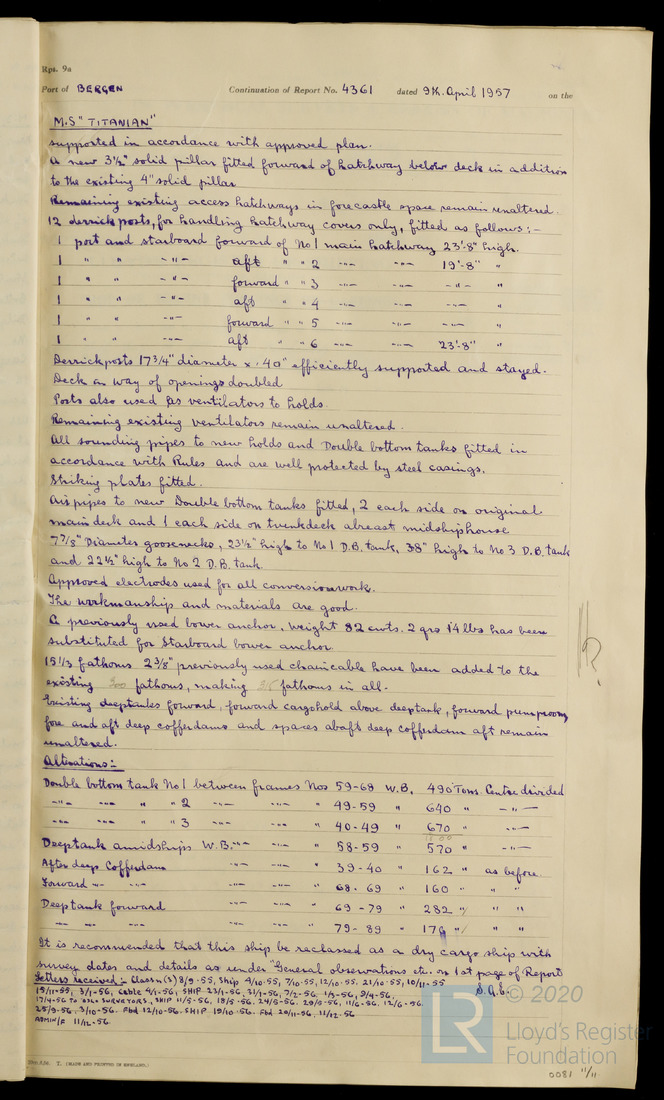 Rps. 9a
Port of BERGEN Continuation of Report No. 4361 dated 9th. April 1957 on the
M.S "TITANIAN"
supported in accordance with approved plan.
A new 3½" solid pillar fitted forward of hatchway below deck in addition
to the existing 4" solid pillar
Remaining existing access hatchways in forecastle space remain unaltered.
12 derrick posts, for handling hatchway covers only, fitted as follows:-
1 port and starboard forward of No 1 main hatchway 23'-8" high.
1 " " -"- aft " " 2 -"- -"- 19'-8" "
1 " " -"- forward " " 3 -"- -"- -"- "
1 " " -"- aft " " 4 -"- -"- -"- "
1 " " -"- forward " " 5 -"- -"- -"- "
1 " " -"- aft " " 6 -"- -"- 23'-8" "
Derrickposts 17 3/4" diameter x .40" efficiently supported and stayed.
Deck in way of openings doubled
Posts also used as ventilators to holds.
Remaining existing ventilators remain unaltered.
All sounding pipes to new holds and Double bottom tanks fitted in
accordance with Rules and are well protected by steel casings.
Striking plates fitted.
Air pipes to new Double bottom tanks fitted, 2 each side on original
main deck and 1 each side on trunkdeck abreast midshiphouse
7 7/8" Diameter goosenecks, 23½" high to No 1 D.B. tank, 38" high to No 3 D.B. tank
and 22½" high to No 2 D.B. tank.
Approved electrodes used for all conversionwork.
The workmanship and materials are good.
A previously used bower anchor, weight 82 cwts. 2 qrs 14 lbs has been
substituted for Starboard bower anchor.
15 1/3 fathoms 2 3/8" previously used chaincable have been added to the
existing 300 fathoms, making 315 fathoms in all.
Existing deeptanks forward, forward cargohold above deeptank, forward pumproom,
fore and aft deep cofferdams and spaces abaft deep cofferdam aft remain
unaltered.
Alterations:-
Double bottom tank No 1 between frames Nos 59-68 W.B. 490 Tons. Centre divided
-"- -"- " " 2 -"- -"- " 49-59 " 640 " -"-
-"- -"- " " 3 -"- -"- " 40-49 " 670 " -"-
Deeptank amidships W.B. -"- -"- " 58-59 " 570 " -"-
After deep Cofferdam -"- -"- " 39-40 " 162 " as before.
Forward -"- -"- -"- -"- " 68-69 " 160 " " "
Deeptank forward -"- -"- " 69-79 " 282 " " "
-"- -"- -"- -"- " 79-89 " 176 " " "
It is recommended that this ship be reclassed as a dry cargo ship with
survey dates and details as under "General observations etc. on 1st page of Report
Letters received:- Class.n(s) 8/9-55, Ship 4/10-55, 7/10-55, 12/10-55, 21/10-55, 10/11-55
15/11-55, 3/1-56, Cable 4/1-56, SHIP 23/1-56, 31/1-56, 7/2-56, 1/3-56, 9/4-56,
17/4-56 TO OSLO SURVEYORS, SHIP 11/5-56, 18/5-56, 24/5-56, 29/5-56, 11/6-56, 12/6-56,
25/9-56, 3/10-56. Fbd 12/10-56. SHIP 19/10-56. Fbd 20/11-56, 11/12-56
ADMIN/F 11/12-56.
S.A.E.
© 2020
LR
Lloyd's Register
Foundation
(MADE AND PRINTED IN ENGLAND.)
0081 11/11